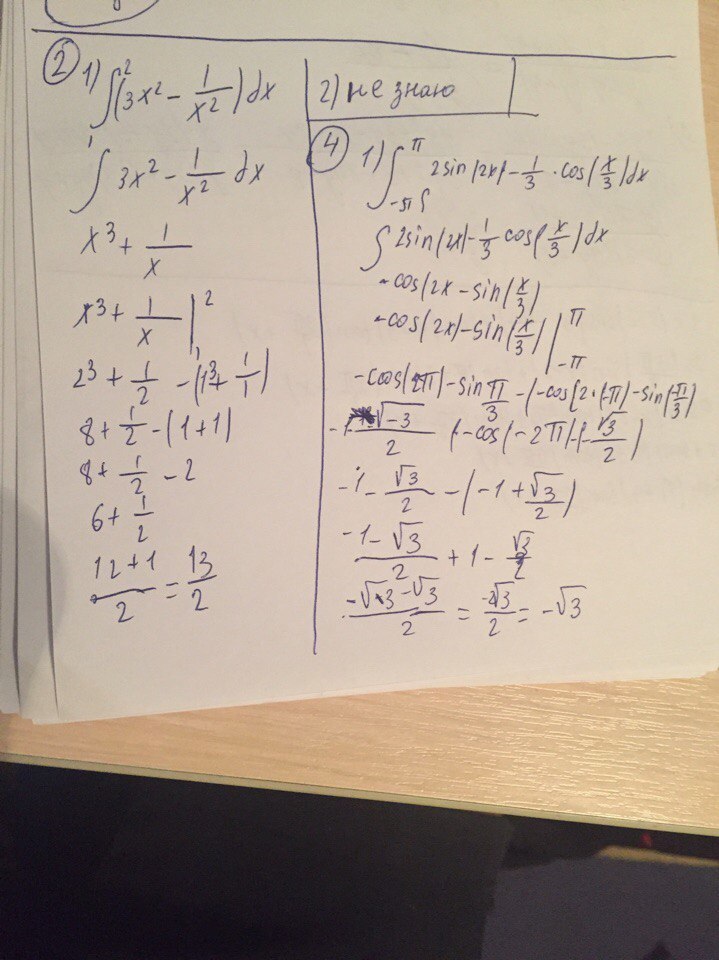 2 1) ∫₁² (3x² - 1/x²) dx
∫ 3x² - 1/x² dx
x³ + 1/x
x³ + 1/x |₁²
2³ + 1/2 - (1³ + 1/1)
8 + 1/2 - (1 + 1)
8 + 1/2 - 2
6 + 1/2
(12 + 1)/2 = 13/2
2) не знаю
4 1) ∫ 2sin(2x) - 1/3 · cos(x/3) dx
∫ 2sin(2x) - 1/3 cos(x/3) dx
-cos(2x - sin(x/3)
-cos(2x) - sin(x/3) |_{-π}^{π}
-cos(2π) - sin π/3 - (-cos(2·(-π) - sin(-π/3)
2 (-cos(-2π) - (-√3/2)
-1 - √3/2 - (-1 + √3/2)
(-1 - √3)/2 + 1 - √3/2
(-√3 - √3)/2 = -2√3/2 = -√3